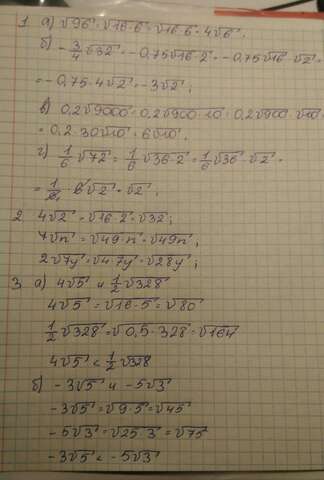 1 а) √96 = √16·6 = √16·6 = 4√6.
б) -3/4 √32 = -0,75√16·2 = -0,75√16·√2 =
= -0,75·4√2 = -3√2;
в) 0,2√9000 = 0,2√900·10 = 0,2√900·√10 =
= 0,2·30√10 = 6√10.
г) 1/6 √72 = 1/6 √36·2 = 1/6 √36·√2 =
= 1/6·6√2 = √2.
2 4√2 = √16·2 = √32;
7√n = √49·n = √49n;
2√7y = √4·7y = √28y;
3 а) 4√5 и 1/2 √328
4√5 = √16·5 = √80
1/2 √328 = √0,5·328 = √164
4√5 < 1/2 √328
б) -3√5 и -5√3
-3√5 = √9·5 = √45
-5√3 = √25·3 = √75
-3√5 < -5√3